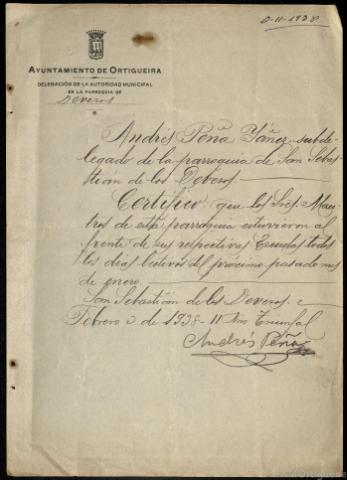 2-11-1938
AYUNTAMIENTO DE ORTIGUEIRA
DELEGACIÓN DE LA AUTORIDAD MUNICIPAL
EN LA PARROQUIA DE
Deveros
Andrés Peña Yáñez, subde-
legado de la parroquia de San Sebas-
tián de los Deveros.
Certifico: que los Sres. Maes-
tros de esta parroquia estuvieron al
frente de sus respectivas Escuelas todos
los días lectivos del próximo pasado mes
de enero.
San Sebastián de los Deveros a
Febrero 2 de 1938 - II Año Triunfal
Andrés Peña